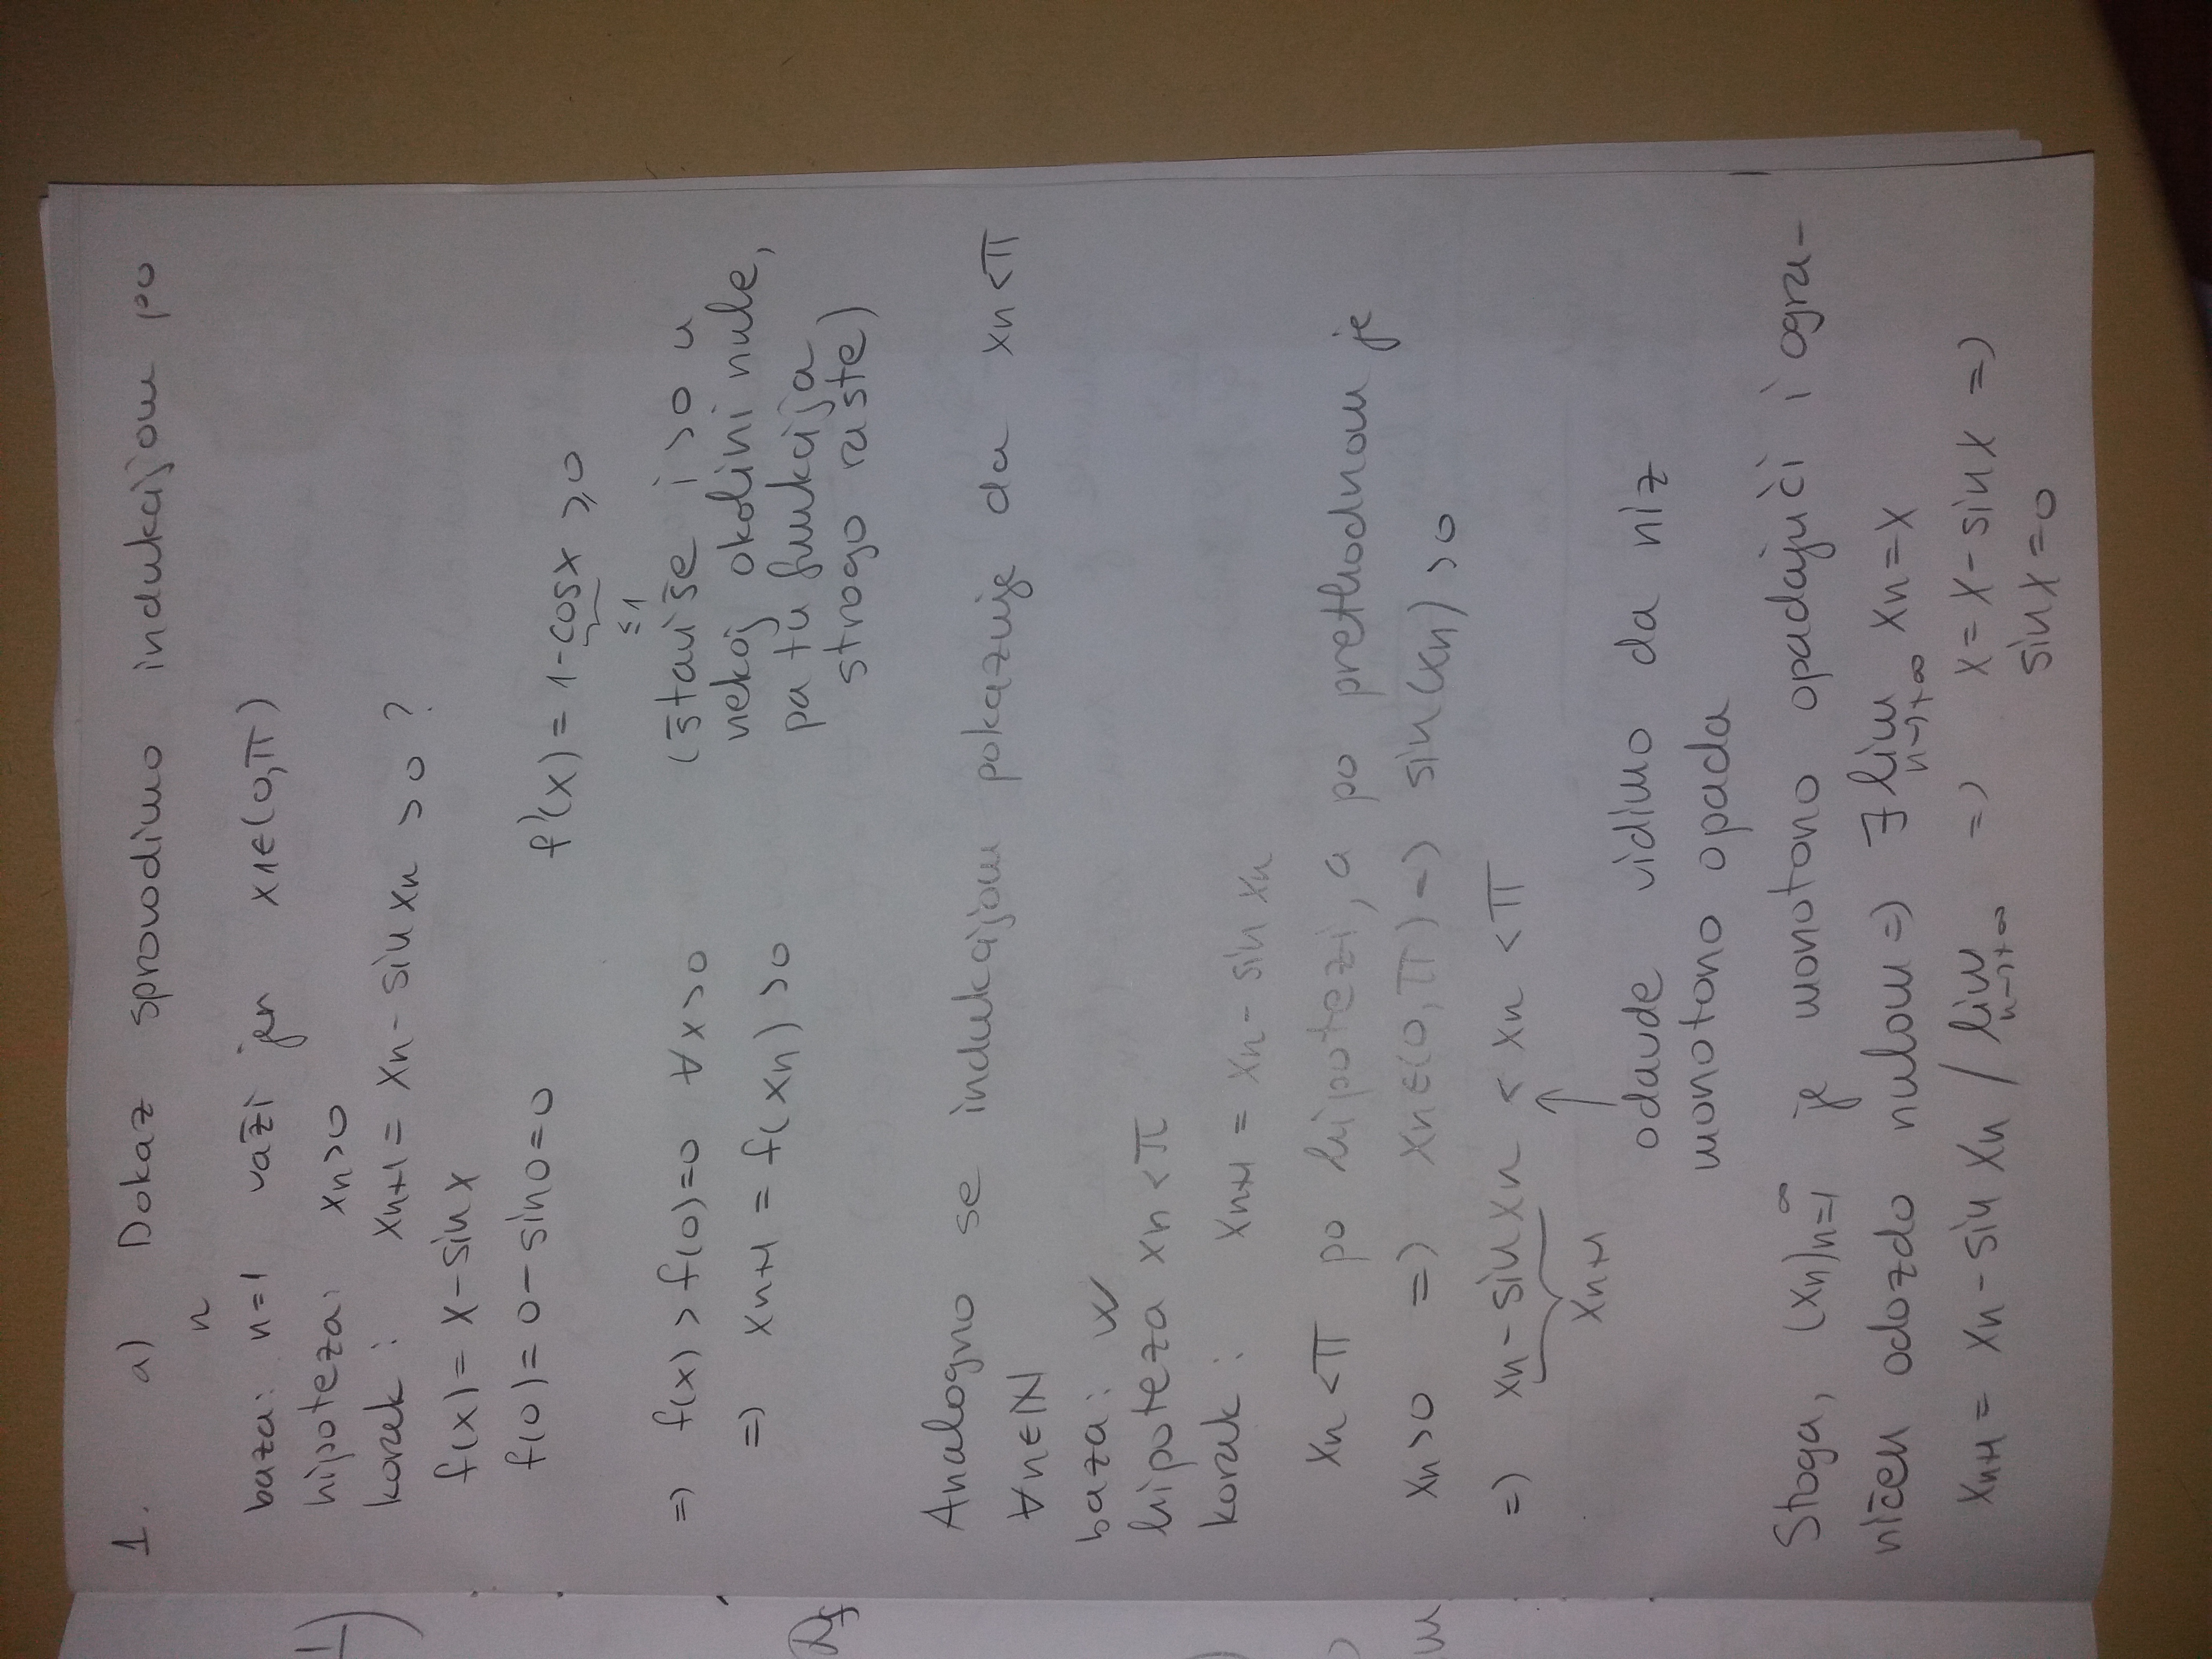 1. a) Dokaz sprovodimo indukcijom po
n
baza: n=1 važi jer x1∈(0,π)
hipoteza: xn>0
korak: xn+1 = xn - sin xn >0 ?
f(x) = x - sin x
f(0) = 0 - sin0 = 0
f'(x) = 1 - cosx ≥ 0
≤1
=> f(x) > f(0)=0 ∀x>0
(štaviše i >0 u
nekoj okolini nule,
=> xn+1 = f(xn) >0
pa tu funkcija
strogo raste)
Analogno se indukcijom pokazuje da xn<π
∀n∈N
baza: ✓
hipoteza xn<π
korak: xn+1 = xn - sin xn
xn<π po hipotezi, a po prethodnom je
xn>0 => xn∈(0,π) => sin(xn) >0
=> xn - sin xn < xn < π
xn+1 ↑
odavde vidimo da niz
monotono opada
Stoga, (xn)n=1 ∞ je monotono opadajući i ogra-
ničen odozdo nulom => ∃ lim n→+∞ xn = x
xn+1 = xn - sin xn / lim n→+∞ => x = x - sin x =>
sin x = 0
1)
Df
m